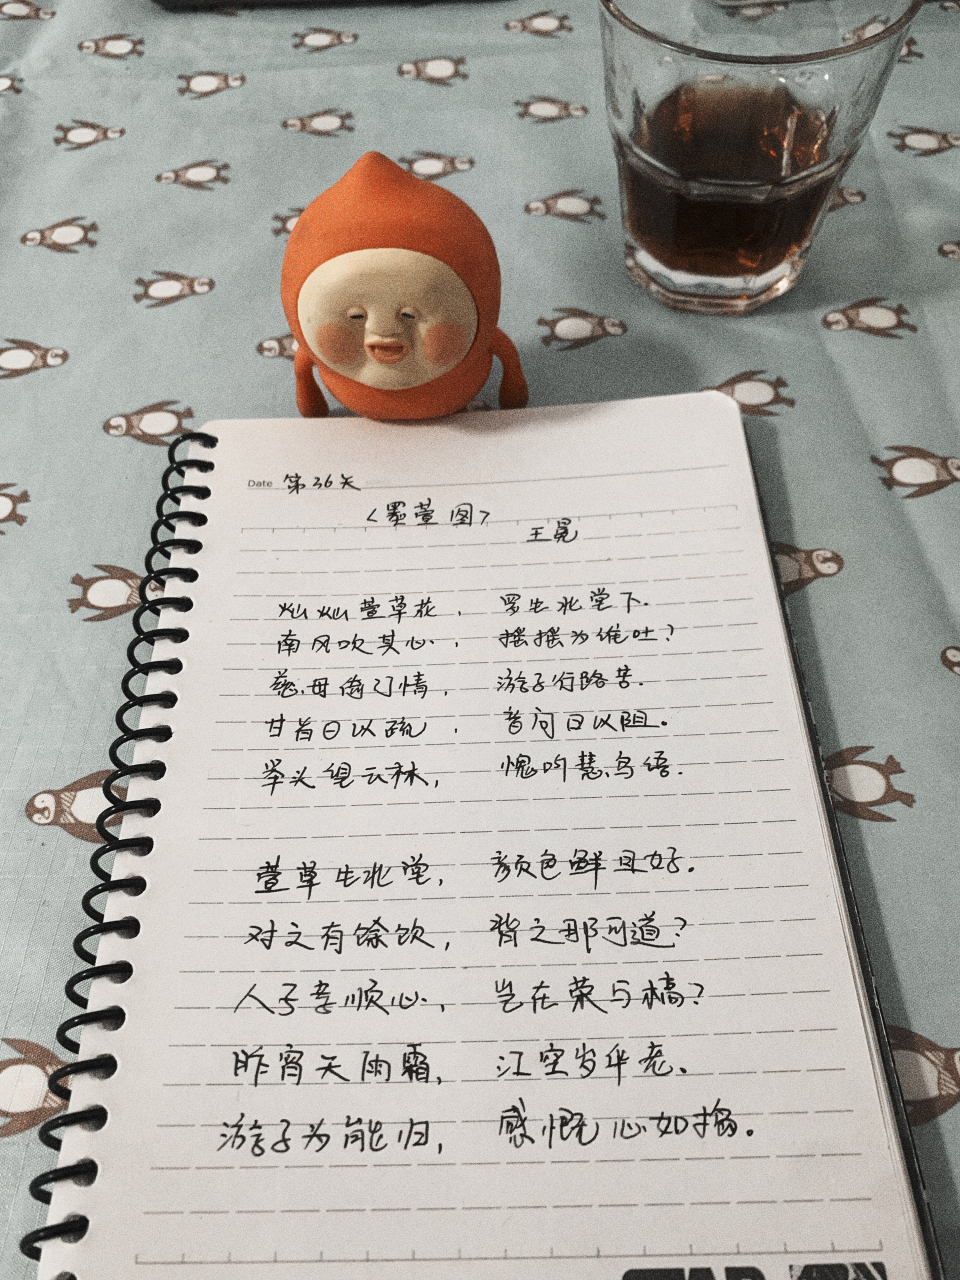 Date 第36天
<墨萱图>
王冕
灿灿萱草花, 罗生北堂下.
南风吹其心, 摇摇为谁吐?
慈母倚门情, 游子行路苦.
甘旨日以疏, 音问日以阻。
举头望云林, 愧听慧鸟语.
萱草生北堂, 颜色鲜且好.
对之有馀饮, 背之那可道?
人子孝顺心, 岂在荣与槁?
昨宵天雨霜, 江空岁华老、
游子为能归, 感慨心如捣。